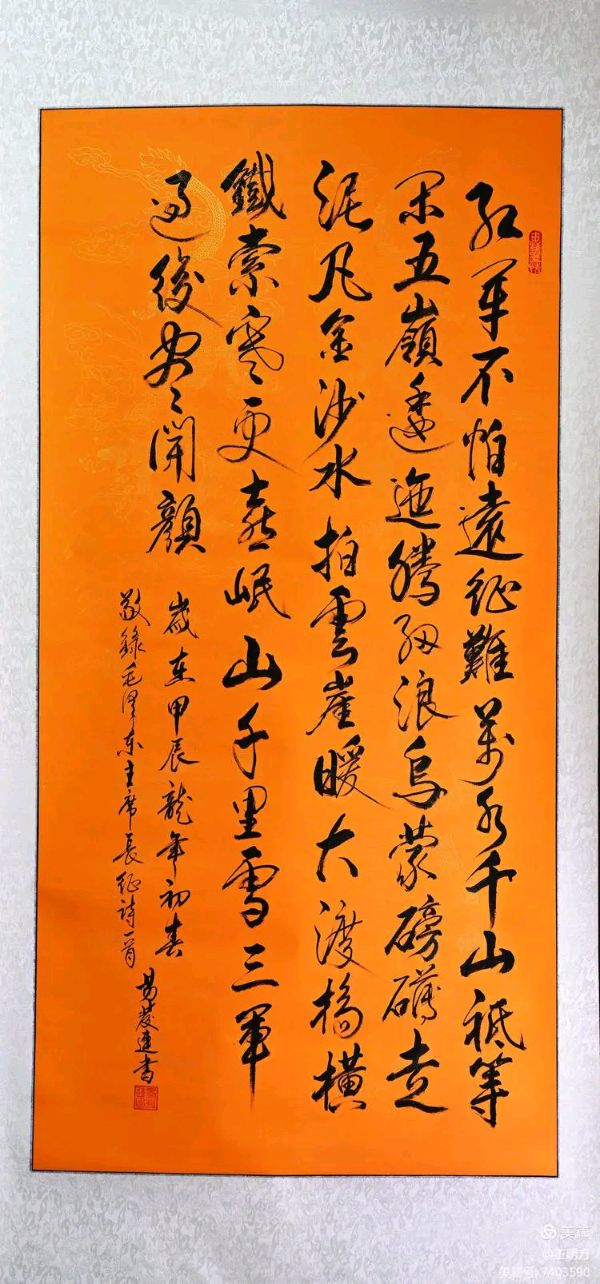 红军不怕遠征難萬水千山祗等
闲五嶺逶迤腾细浪烏蒙磅礴走
泥丸金沙水拍雲崖暖大渡橋横
鐵索寒更喜岷山千里雪三軍
過後尽開顔
歲在甲辰龍年初春
敬錄毛澤东主席長征詩一首
易連書
美篇
美篇号: 7403590